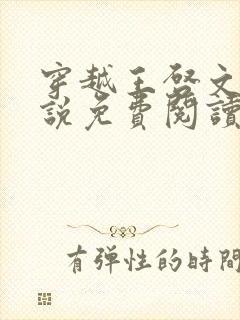 穿越王啓文
說免費閱讀
有弹性的時間